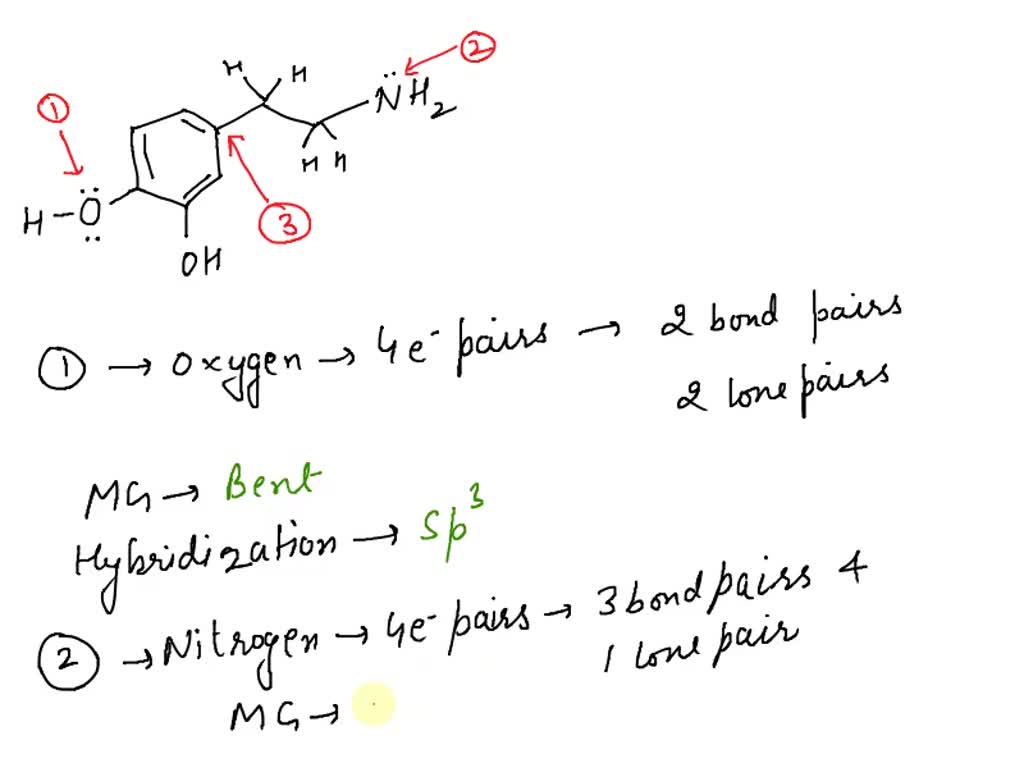 ②
H H
①
N̈H₂
H H
H-Ö
③
OH
① → Oxygen → 4e⁻ pairs → 2 bond pairs
2 lone pairs
MG → Bent
Hybridization → Sp³
② → Nitrogen → 4e⁻ pairs → 3 bond pairs 4
1 lone pair
MG →